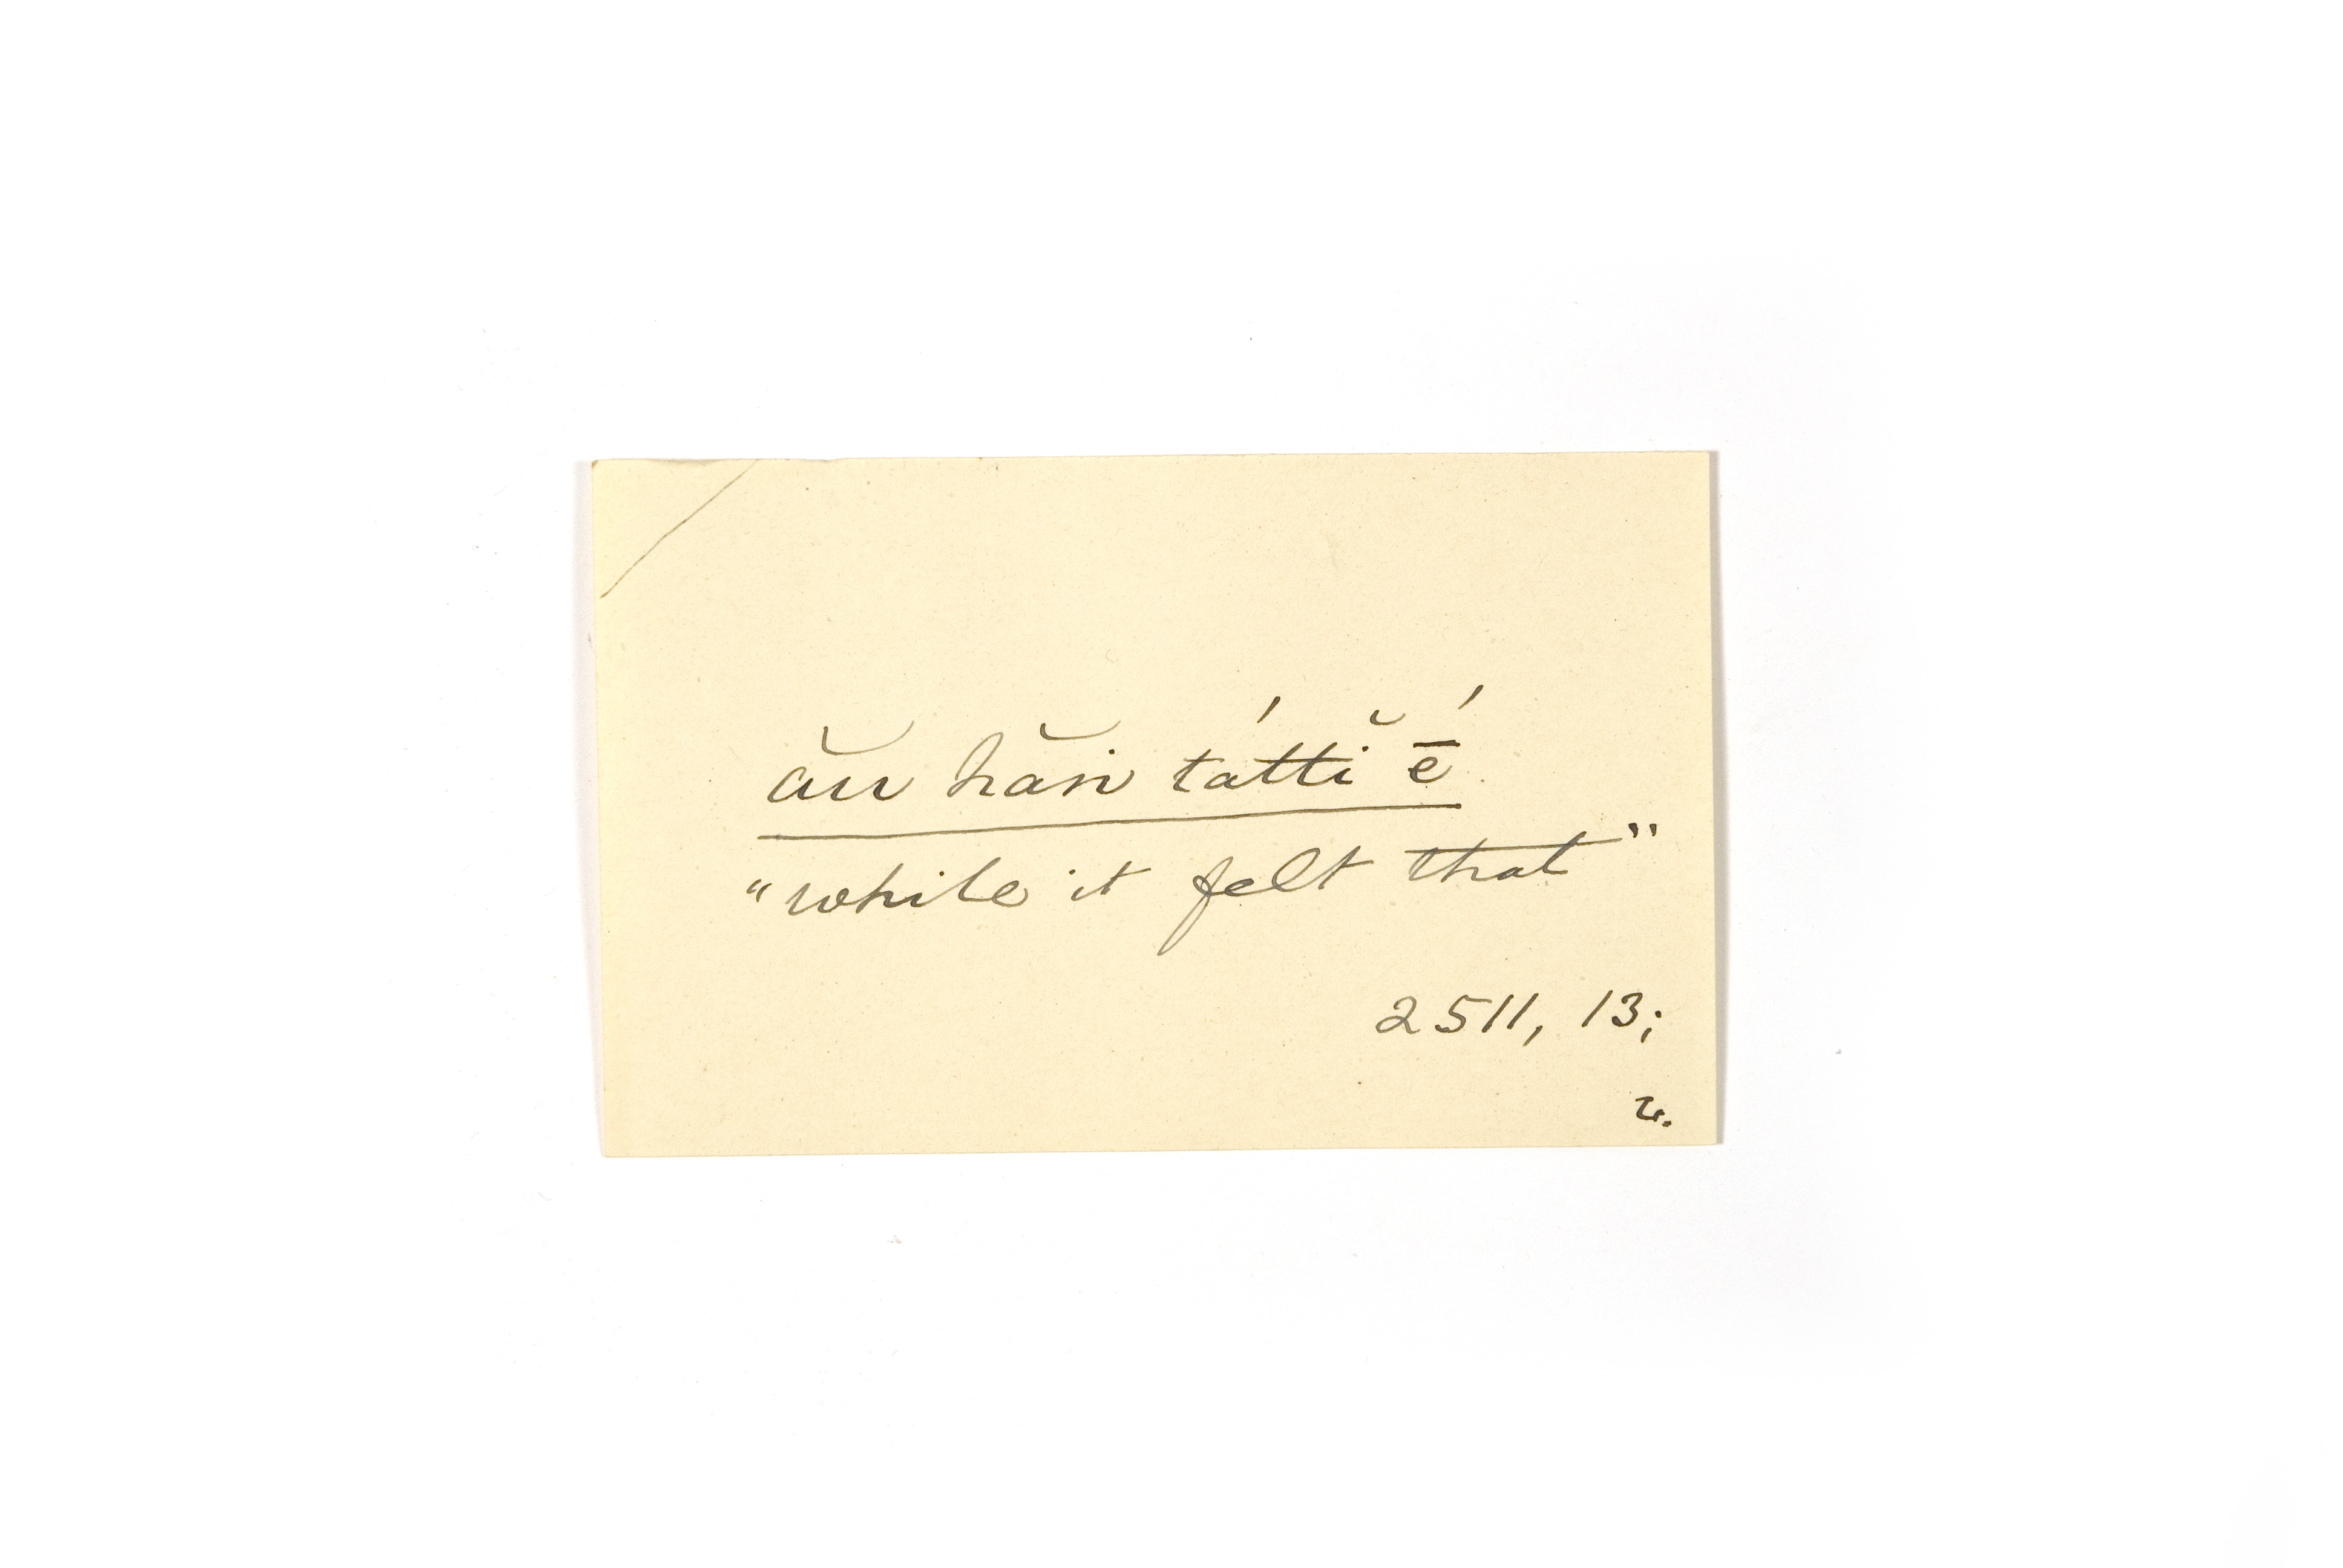 ăn hăn táttĭ ḗ
"while it felt that"
2511, 13;